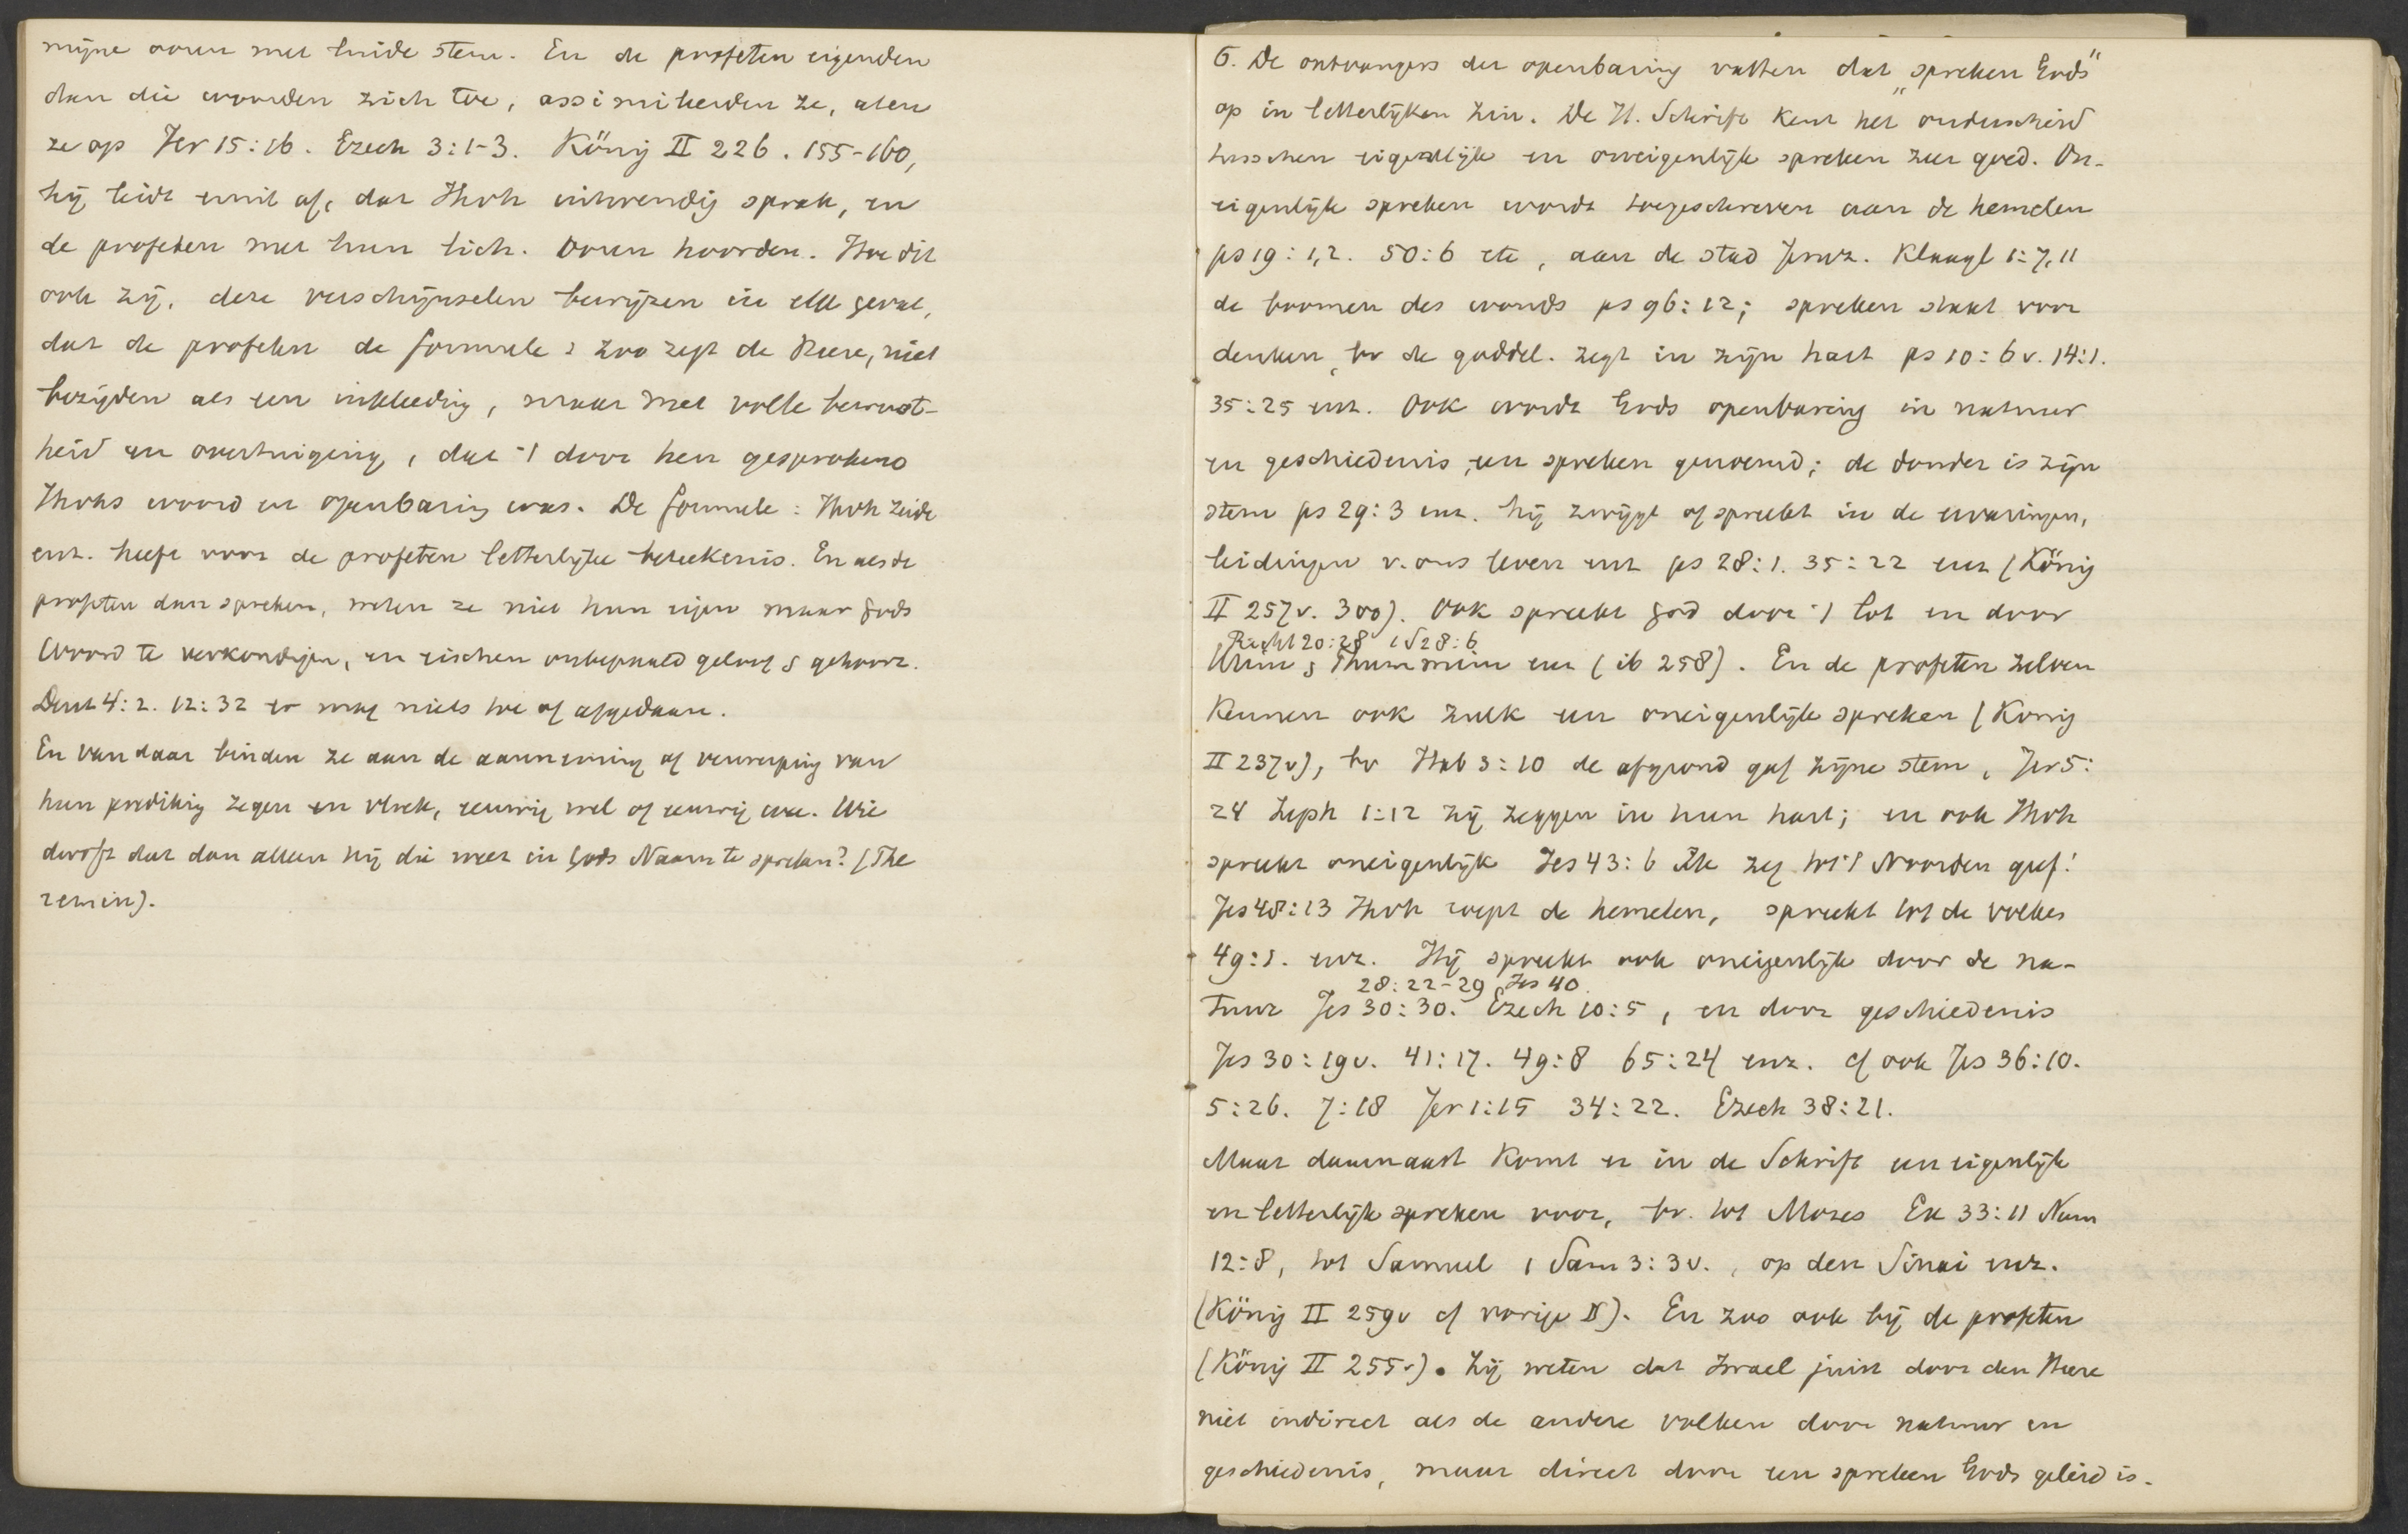 mijne ooren met luide stem. En de profeten eigenden
dan die woorden zich toe, assimileerden ze, aten
ze op Jer 15:16. Ezech 3:1-3. König II 226. 155-160,
hij leidt eruit af, dat Jhvh uitwendig sprak, en
de profeten met hun lich. ooren hoorden. Hoe dit
ook zij, deze verschijnselen bewijzen in elk geval,
dat de profeten de formule: zoo zegt de Heere, niet
bezigden als een inkleeding, maar met volle bewust-
heid en overtuiging, dat 't door hen gesprokene
Jhvhs woord en openbaring was. De formule: Jhvh zeide
enz. heeft voor de profeten letterlijke beteekenis. En als de
profeten dan spreken, weten ze niet hun eigen maar Gods
Woord te verkondigen, en eischen onbepaald geloof & gehoorz.
Deut 4:2. 12:32 er mag niets toe of afgedaan.
En van daar binden ze aan de aanneming of verwerping van
hun prediking zegen en vloek, eeuwig wel of eeuwig wee. Wie
durft dat dan alleen hij die weet in Gods Naam te spreken? (The
remin).
6. De ontvangers der openbaring vatten dat "spreken Gods"
op in letterlijken zin. De H. Schrift kent het onderscheid
tusschen eigenlijk en oneigenlijk spreken zeer goed. On-
eigenlijk spreken wordt toegeschreven aan de hemelen
ps 19:1,2. 50:6 etc, aan de stad Jeruz. Klaagl 1:7,11
de boomen des wouds ps 96:12; spreken staat voor
denken, bv de goddel. zegt in zijn hart ps 10:6v. 14:1.
35:25 enz. Ook wordt Gods openbaring in natuur
en geschiedenis een spreken genoemd; de donder is zijn
stem ps 29:3 enz. hij zwijgt of spreekt in de ervaringen,
leidingen v. ons leven enz ps 28:1. 35:22 enz (König
II 257v. 300). Ook spreekt God door 't lot en door
Richt 20:28 1S28:6
Urim & Thummim enz (ib 258). En de profeten zelven
kennen ook zulk een oneigenlijk spreken (König
II 237v), bv Hab 3:10 de afgrond gaf zijne stem, Jer 5:
24 Zeph 1:12 zij zeggen in hun hart; en ook Jhvh
spreekt oneigenlijk Jes 43:6 Ik zeg tot 't Noorden geef!
Jes 48:13 Jhvh roept de hemelen, spreekt tot de volken
49:1. enz. Hij spreekt ook oneigenlijk door de na-
28:22-29 Jes 40.
tuur Jes 30:30. Ezech 10:5, en door geschiedenis
Jes 30:19v. 41:17. 49:8 65:24 enz. cf ook Jes 36:10.
5:26. 7:18 Jer 1:15 34:22. Ezech 38:21.
Maar daarnaast komt er in de Schrift een eigenlijk
en letterlijk spreken voor, bv. tot Mozes Ex 33:11 Num
12:8, tot Samuel 1 Sam 3:3v., op den Sinai enz.
(König II 259v cf vorige §). En zoo ook bij de profeten
(König II 255v). Zij weten dat Israel juist door den Heere
niet indirect als de andere volken door natuur en
geschiedenis, maar direct door een spreken Gods geleid is.